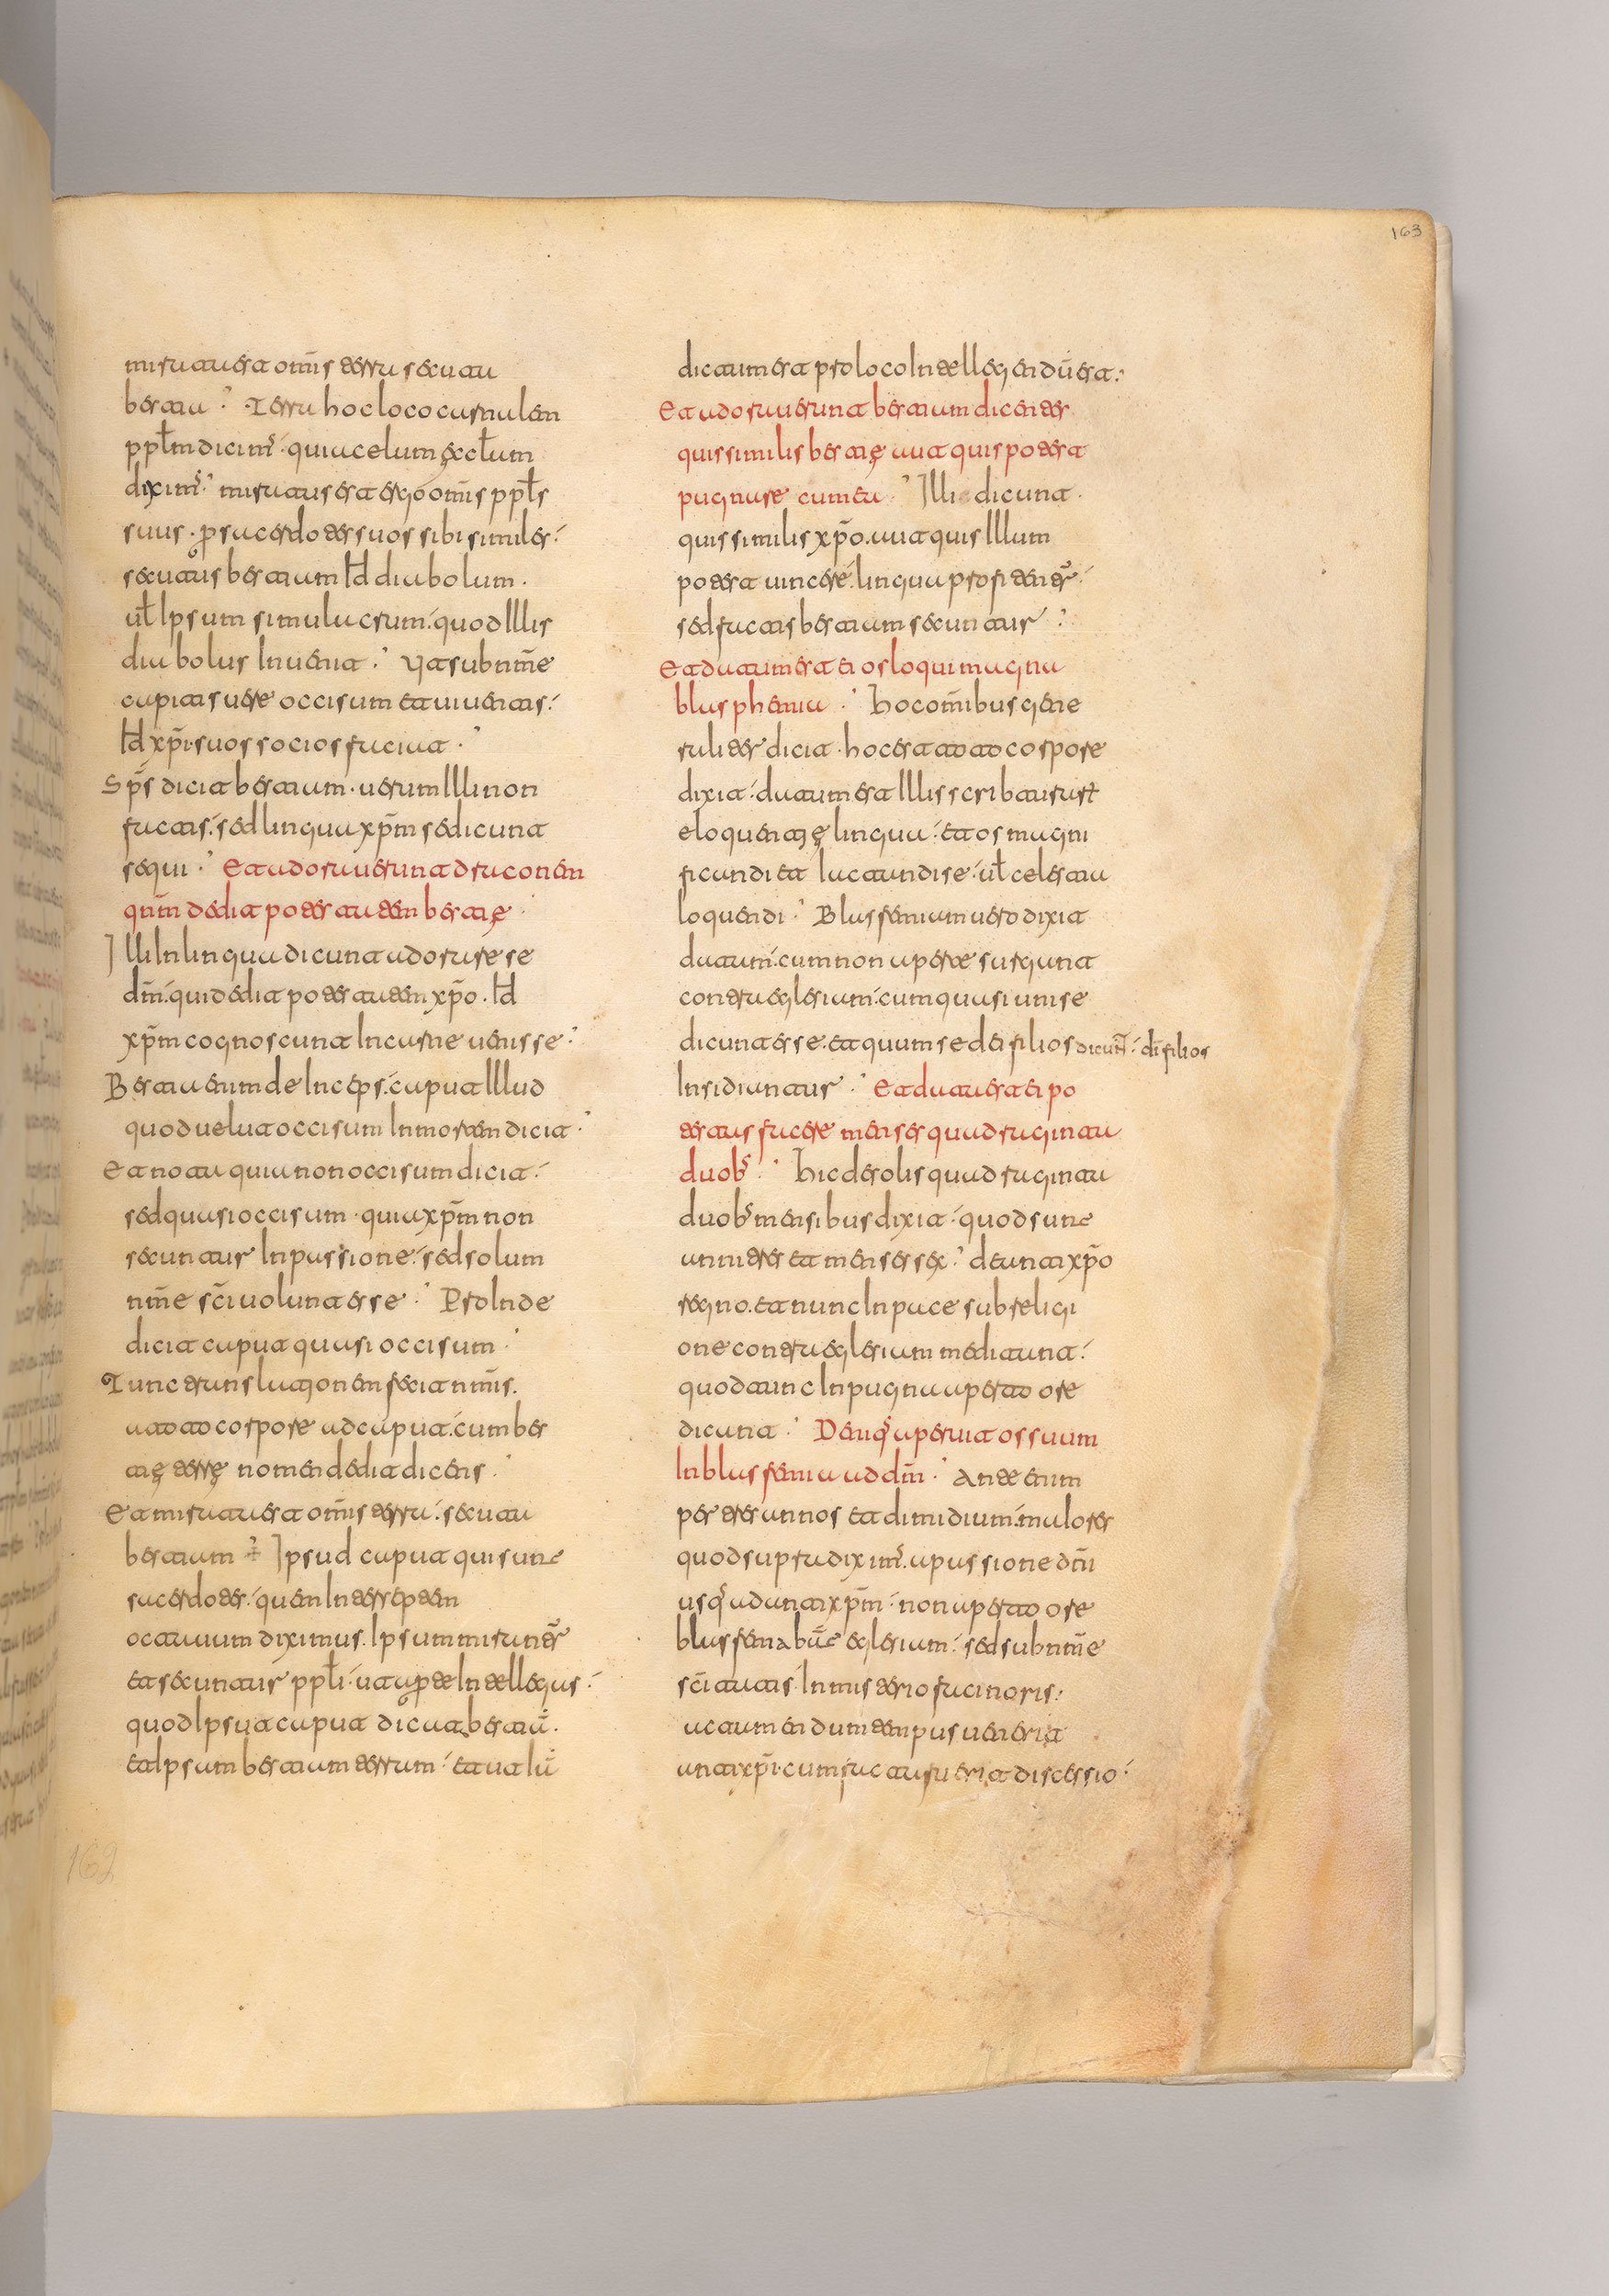 mirata est om̄is terra secuta
bestia · Terra hoc loco carnalem
ppłm dicimꝰ · quia celum ęcclam
diximꝰ · miratus est ergo om̄is ppłs
suus · per sacerdotes suos sibi similes ·
secutus bestiam id diabolum ·
uł ipsum simulacrum · quod illis
diabolus inuenit · Ut sub nm̄e
capitis uere occisum et uiuentis ·
id xp̄i · suos socios faciat ·
Sp̄s dicit bestiam · uerum illi non
factis · sed lingua xp̄m se dicunt
sequi · Et adorauerunt draconem
qnm̄ dedit potestatem bestię ·
Illi in lingua dicunt adorare se
dm̄ · qui dedit potestatem xp̄o · id
xp̄m cognoscunt in carne uenisse ·
Bestia enim deinceps · caput illud
quod uelut occisum in mortem dicit ·
Et nota quia non occisum dicit ·
sed quasi occisum · quia xp̄m non
secuntur in passione · sed solum
nm̄e sc̄i uolunt esse · Proinde
dicit caput quasi occisum ·
Tunc translationem fecit nm̄is ·
a toto corpore ad caput · cum bes
tię terrę nomen dedit dicens ·
Et mirata est om̄is terra · secuta
bestiam · Ipsud caput qui sunt
sacerdotes · quem in terrestrem
octauum diximus · Ipsum mirantꝰ
et secuntur ppłi · ut aperte intellegas ·
quod ipsut caput dicat bestiā ·
et ipsum bestiam terrum · et ut alū
dictum est pro loco intellegendū est ·
Et adorauerunt bestiam dicentes
quis similis bestię aut quis poterit
pugnare cum ea · Illi dicunt ·
quis similis xp̄o · aut quis illum
poterit uincere · lingua profitentꝰ ·
sed factis bestiam secuntur ·
Et datum est ei os loqui magna
blasphemia · Hoc om̄ibus gene
raliter dicit · hoc est a toto corpore
dixit · datum est illis scribturarum
eloquentię lingua · et os magni
ficandi et iactandi se · uł celesta
loquendi · Blasfemium uero dixit
datum · cum non aperte surgunt
contra eglesiam · cum quasi unire
dicunt esse · et quum se dei filios dicunt · di filios
insidiantur · Et data est ei po
testas facere menses quadraginta
duobꝰ · Hic de solis quadraginta
duobꝰ mensibus dixit · quod sunt
anni tres et menses sex · de antixp̄o
regno · et nunc in pace sub religi
one contra eglesium mediant ·
quod tunc in pugna aperto ore
dicunt · Denique aperuit os suum
in blasfemia ad dm̄ · Ante enim
per tres annos et dimidium · maiores
quod supra diximꝰ · a passione dn̄i
usqꝰ ad antixp̄m · non aperto ore
blasfemabūt eglesium · sed sub nm̄e
sc̄itatis · In misterio facinoris ·
ac tamen dum tempus uenerit
antixp̄i · cum facta fuerit discessio ·
163
162